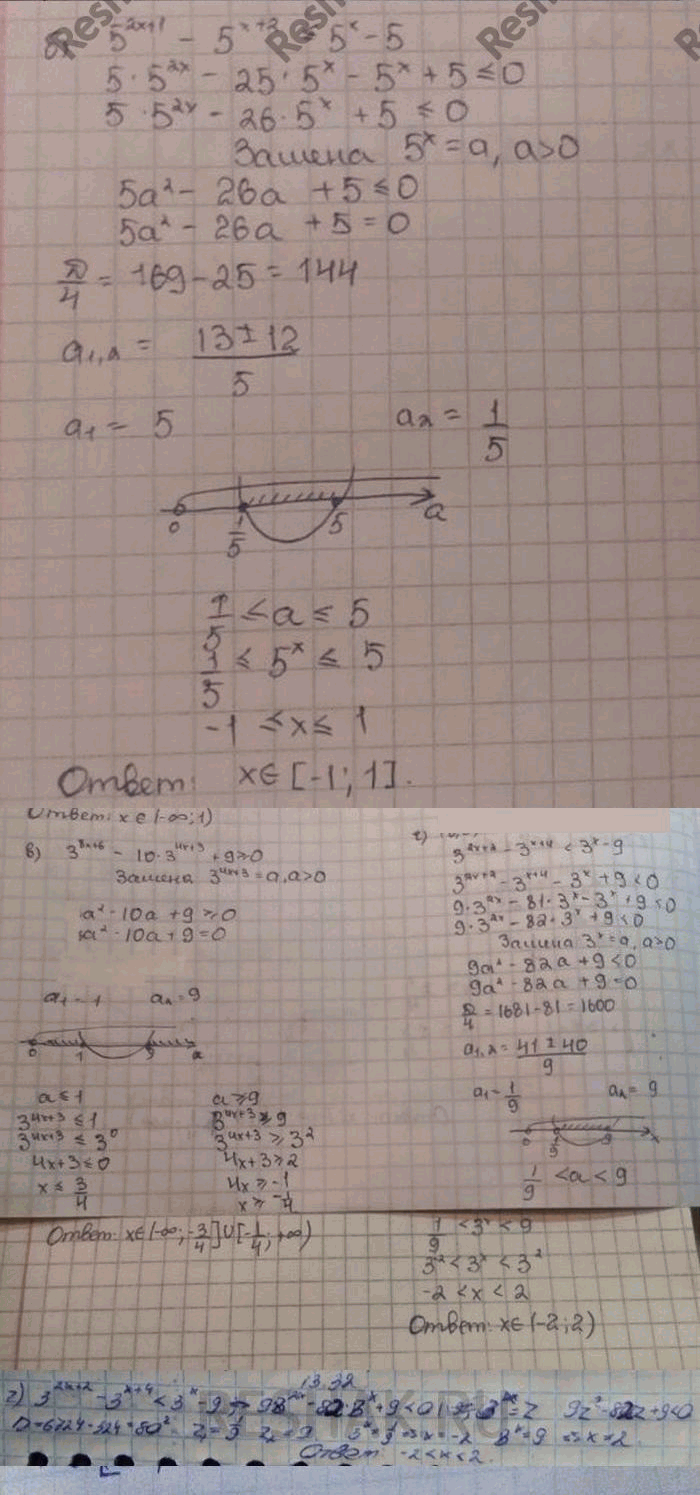 б) 5^{2x+1} - 5^{x+2} ≤ 5^x - 5
5·5^{2x} - 25·5^x - 5^x + 5 ≤ 0
5·5^{2x} - 26·5^x + 5 ≤ 0
Замена 5^x = a, a>0
5a² - 26a + 5 ≤ 0
5a² - 26a + 5 = 0
D/4 = 169 - 25 = 144
a₁,₂ = (13 ± 12)/5
a₁ = 5 a₂ = 1/5
0 1/5 5 a
1/5 ≤ a ≤ 5
1/5 ≤ 5^x ≤ 5
-1 ≤ x ≤ 1
Ответ: x∈[-1; 1].
Ответ: x∈(-∞; 1)
в) 3^{8x+6} - 10·3^{4x+3} + 9 ≥ 0
Замена 3^{4x+3} = a, a>0
a² - 10a + 9 ≥ 0
a² - 10a + 9 = 0
a₁ = 1 a₂ = 9
0 1 9 a
a ≤ 1 a ≥ 9
3^{4x+3} ≤ 1 3^{4x+3} ≥ 9
3^{4x+3} ≤ 3^0 3^{4x+3} ≥ 3^2
4x+3 ≤ 0 4x+3 ≥ 2
x ≤ 3/4 4x ≥ -1
x ≥ -1/4
Ответ: x∈(-∞; -3/4]∪[-1/4; +∞)
г)
3^{2x+2} - 3^{x+4} < 3^x - 9
3^{2x+2} - 3^{x+4} - 3^x + 9 < 0
9·3^{2x} - 81·3^x - 3^x + 9 < 0
9·3^{2x} - 82·3^x + 9 < 0
Замена 3^x = a, a>0
9a² - 82a + 9 < 0
9a² - 82a + 9 = 0
D/4 = 1681 - 81 = 1600
a₁,₂ = (41 ± 40)/9
a₁ = 1/9 a₂ = 9
0 1/9 9 x
1/9 < a < 9
1/9 < 3^x < 9
3^{-2} < 3^x < 3^2
-2 < x < 2
Ответ: x∈(-2; 2)
13.32
г) 3^{2x+2} - 3^{x+4} < 3^x - 9 ⇒ 9·3^{2x} - 82·3^x + 9 < 0 3^x = z 9z² - 82z + 9 < 0
D = 6724 - 324 = 80² 3^x = 9 ⇒ x = 2
Ответ -2 < x < 2.
RESHAK.RU